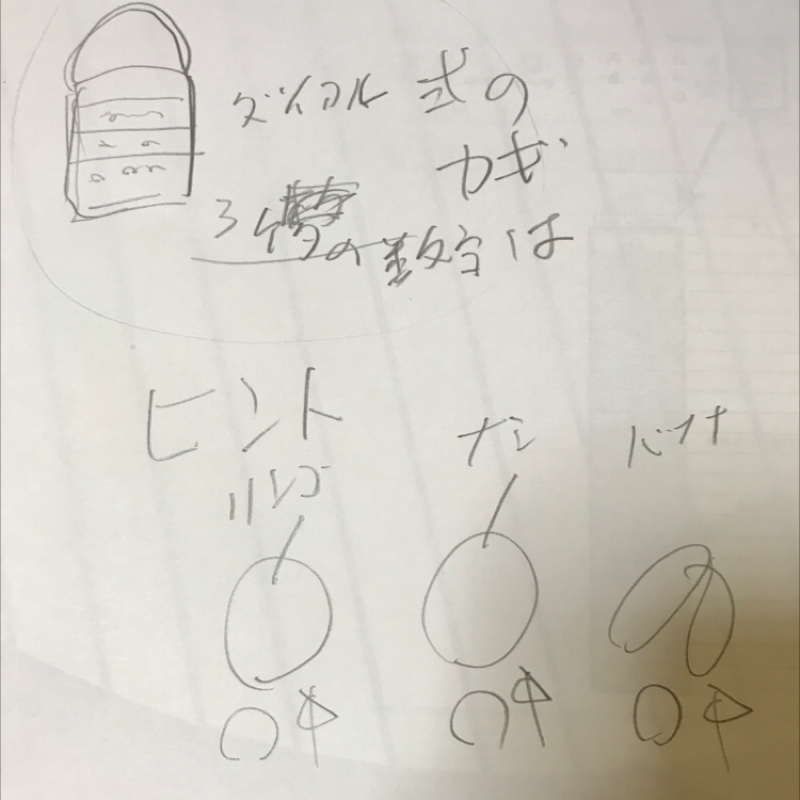 ダイアル式の
カギ
3桁の数字は
ヒント
リンゴ ナシ バナナ